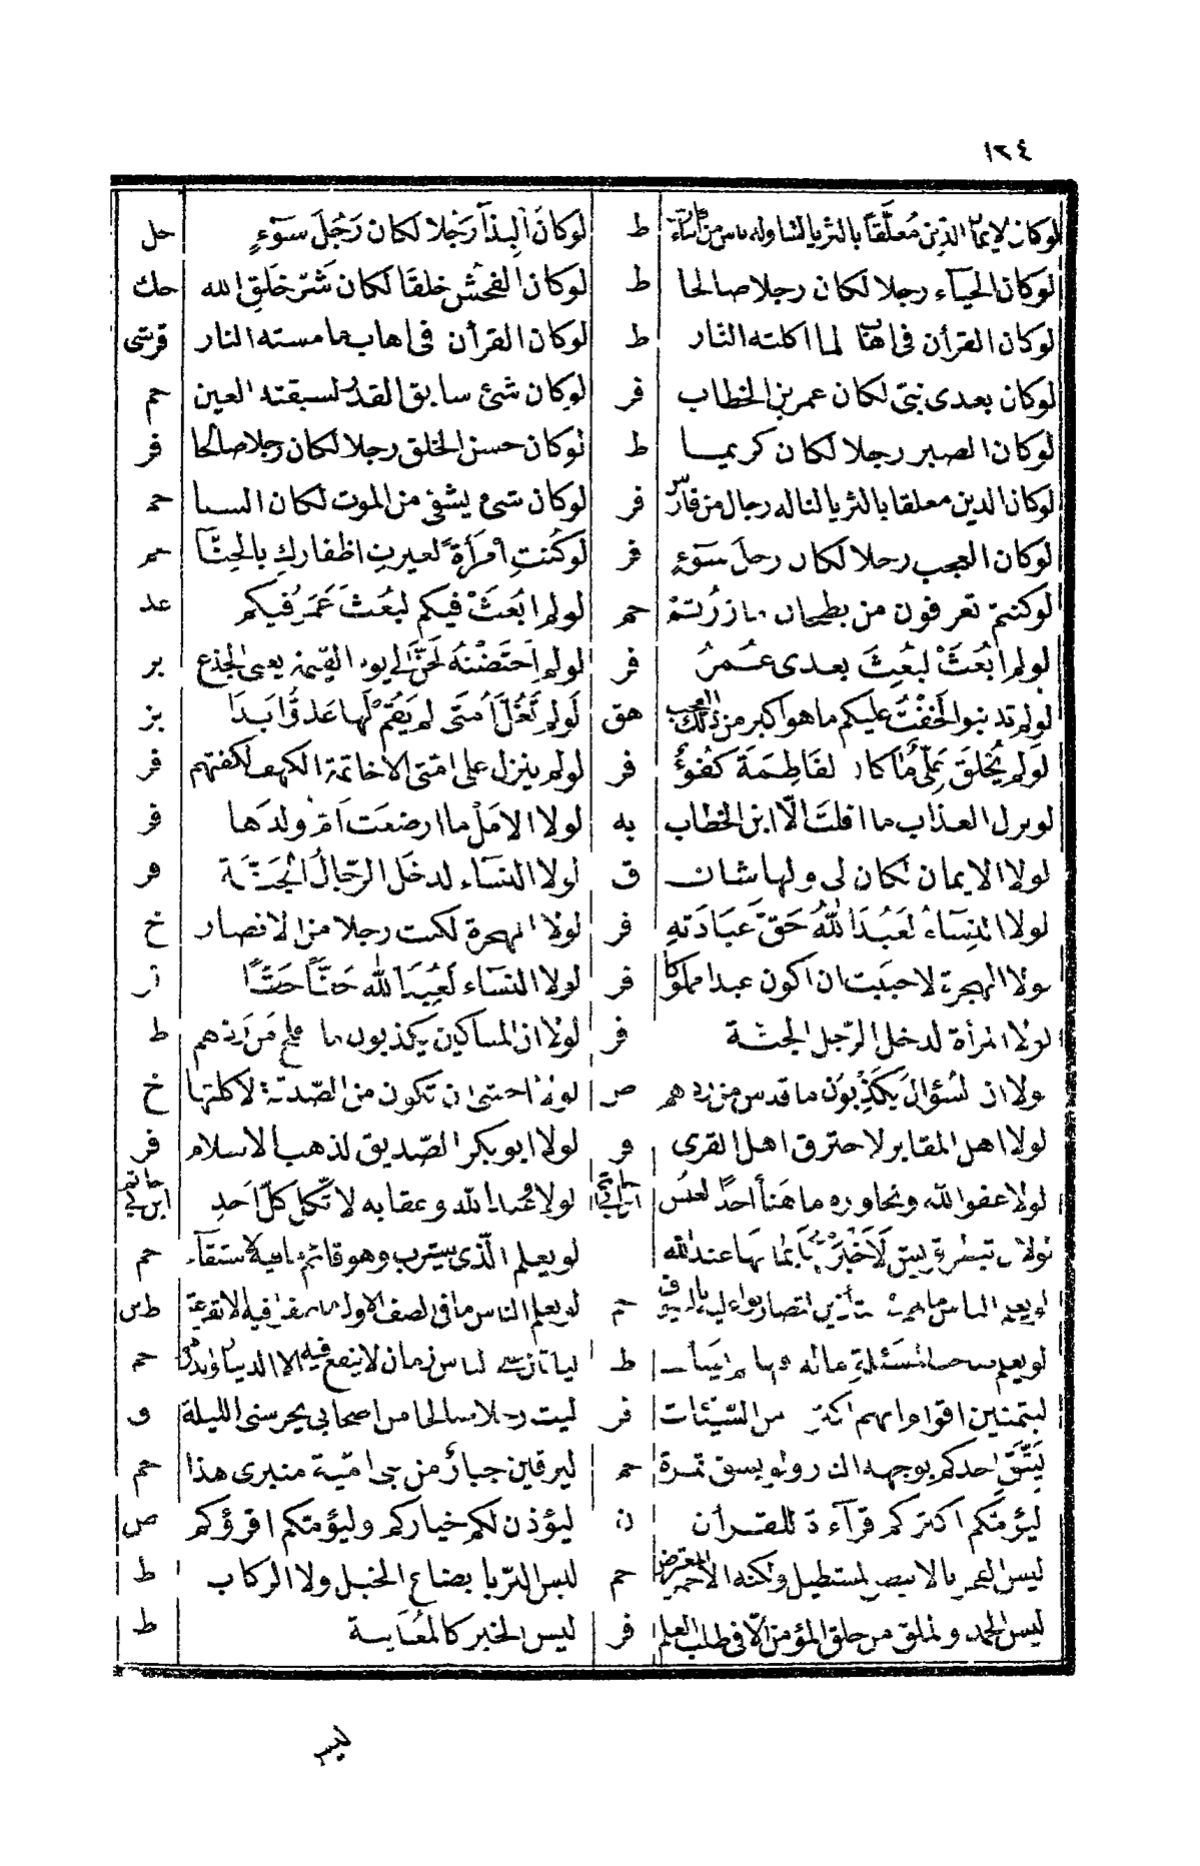 ١٢٤
لوكان الايمان معلقا بالثريا لتناوله ناس من ط لوكان البذآء رجلا لكان رجل سوٓءٍ حل
لوكان الحيآء رجلا لكان رجلا صالحا ط لوكان الفحش خلقا لكان شرّ خلق الله حك
لوكان القرأن فى اهاب لما اكلته النار ط لوكان القرأن فى اهاب ما مسته النار قرشى
لوكان بعدى نبىّ لكان عمر بن الخطاب فر لوكان شئ سابق القدر لسبقته العين حم
لوكان الصبر رجلا لكان كريما ط لوكان حسن الخلق رجلا لكان رجلا صالحا فر
لوكان الدين معلقا بالثريا لناله رجال من فارس فر لوكان شئ يشفى من الموت لكان السنا حم
لوكان العجب رجلا لكان رجل سوٓءٍ فر لوكُنتِ امرأةً لغيرتِ اظفاركِ بالحنّآ حم
لوكنتم تغرفون من بطحان ما زدتم حم لولم ابعث فيكم لبعث عمر فيكم عد
لولم ابعث لبعث بعدى عمر فر لولم احتضنه لحنّ الى يوم القيمة يعنى الجذع بر
لولم تذنبوا لخفت عليكم ما هو اكبر من ذلك العجب هق لولم تغلّ امتى لم يقم لها عدوّ ابدا بز
لولم يخلق علىّ ما كان لفاطمة كفوٌ فر لولم ينزل على امتى الا خاتمة الكهف لكفتهم فر
لو نزل العذاب ما افلت الّا ابن الخطاب به لولا الامل ما ارضعت ام ولدها فر
لولا الايمان لكان لى ولها شان ق لولا النسآء لدخل الرّجال الجنّة فر
لولا النسآء لعُبد الله حقّ عبادته فر لولا الهجرة لكنت رجلا من الانصار خ
لولا الهجرة لاحببت ان اكون عبدا مملوكا فر لولا النسآء لعُبد الله حقّاً حقّاً
لولا المرأة لدخل الرّجل الجنّة فر لولا ان المساكين يكذبون ما افلح من ردّهم ط
لولا ان السؤال يكذبون ما قدس من ردهم ص لولا احتى ان تكون من الصّدقة لاكلتها خ
لولا اهل المقابر لاحترق اهل القرى و لولا ابو بكر الصّديق لذهب الاسلام فر
لولا عفو الله وتجاوزه ما هنأ احدا لعيش ابن ابى حاتم لولا وعيد الله وعقابه لاتّكل كلّ احد ابن ابى حاتم
لو يعلم الّذى يشرب وهو قائم ما فيه لاستقآء حم
حم لو يعلم الناس ما فى الصف الاول ما كان فيه الا قرعة
لو يعلم صاحب المسئلة ماله فيها لم يسأل ط ليأتين على الناس زمان لا ينفع فيه الا الدينار والدرهم حم
ليتمنين اقوام انهم اكثروا من السّيئات فر ليت رجلا صالحا من اصحابى يحرسنى الليلة ق
ليتّق احدكم بوجهه النار ولو بشق تمرة حم ليرقين جبار من بنى اميّة منبرى هذا حم
ليؤمّكم اكثركم قرآءة للقرأن ن ليؤذن لكم خياركم وليؤمّكم اقرؤكم ص
ليس الفجر بالابيض المستطيل ولكنه الاحمر المعترض حم ليس البرّ بايضاع الخيل ولا الركاب ط
ليس الحسد والملق من خلق المؤمن الّا فى طلب العلم فر ليس الخبر كالمعاينة ط
ليس